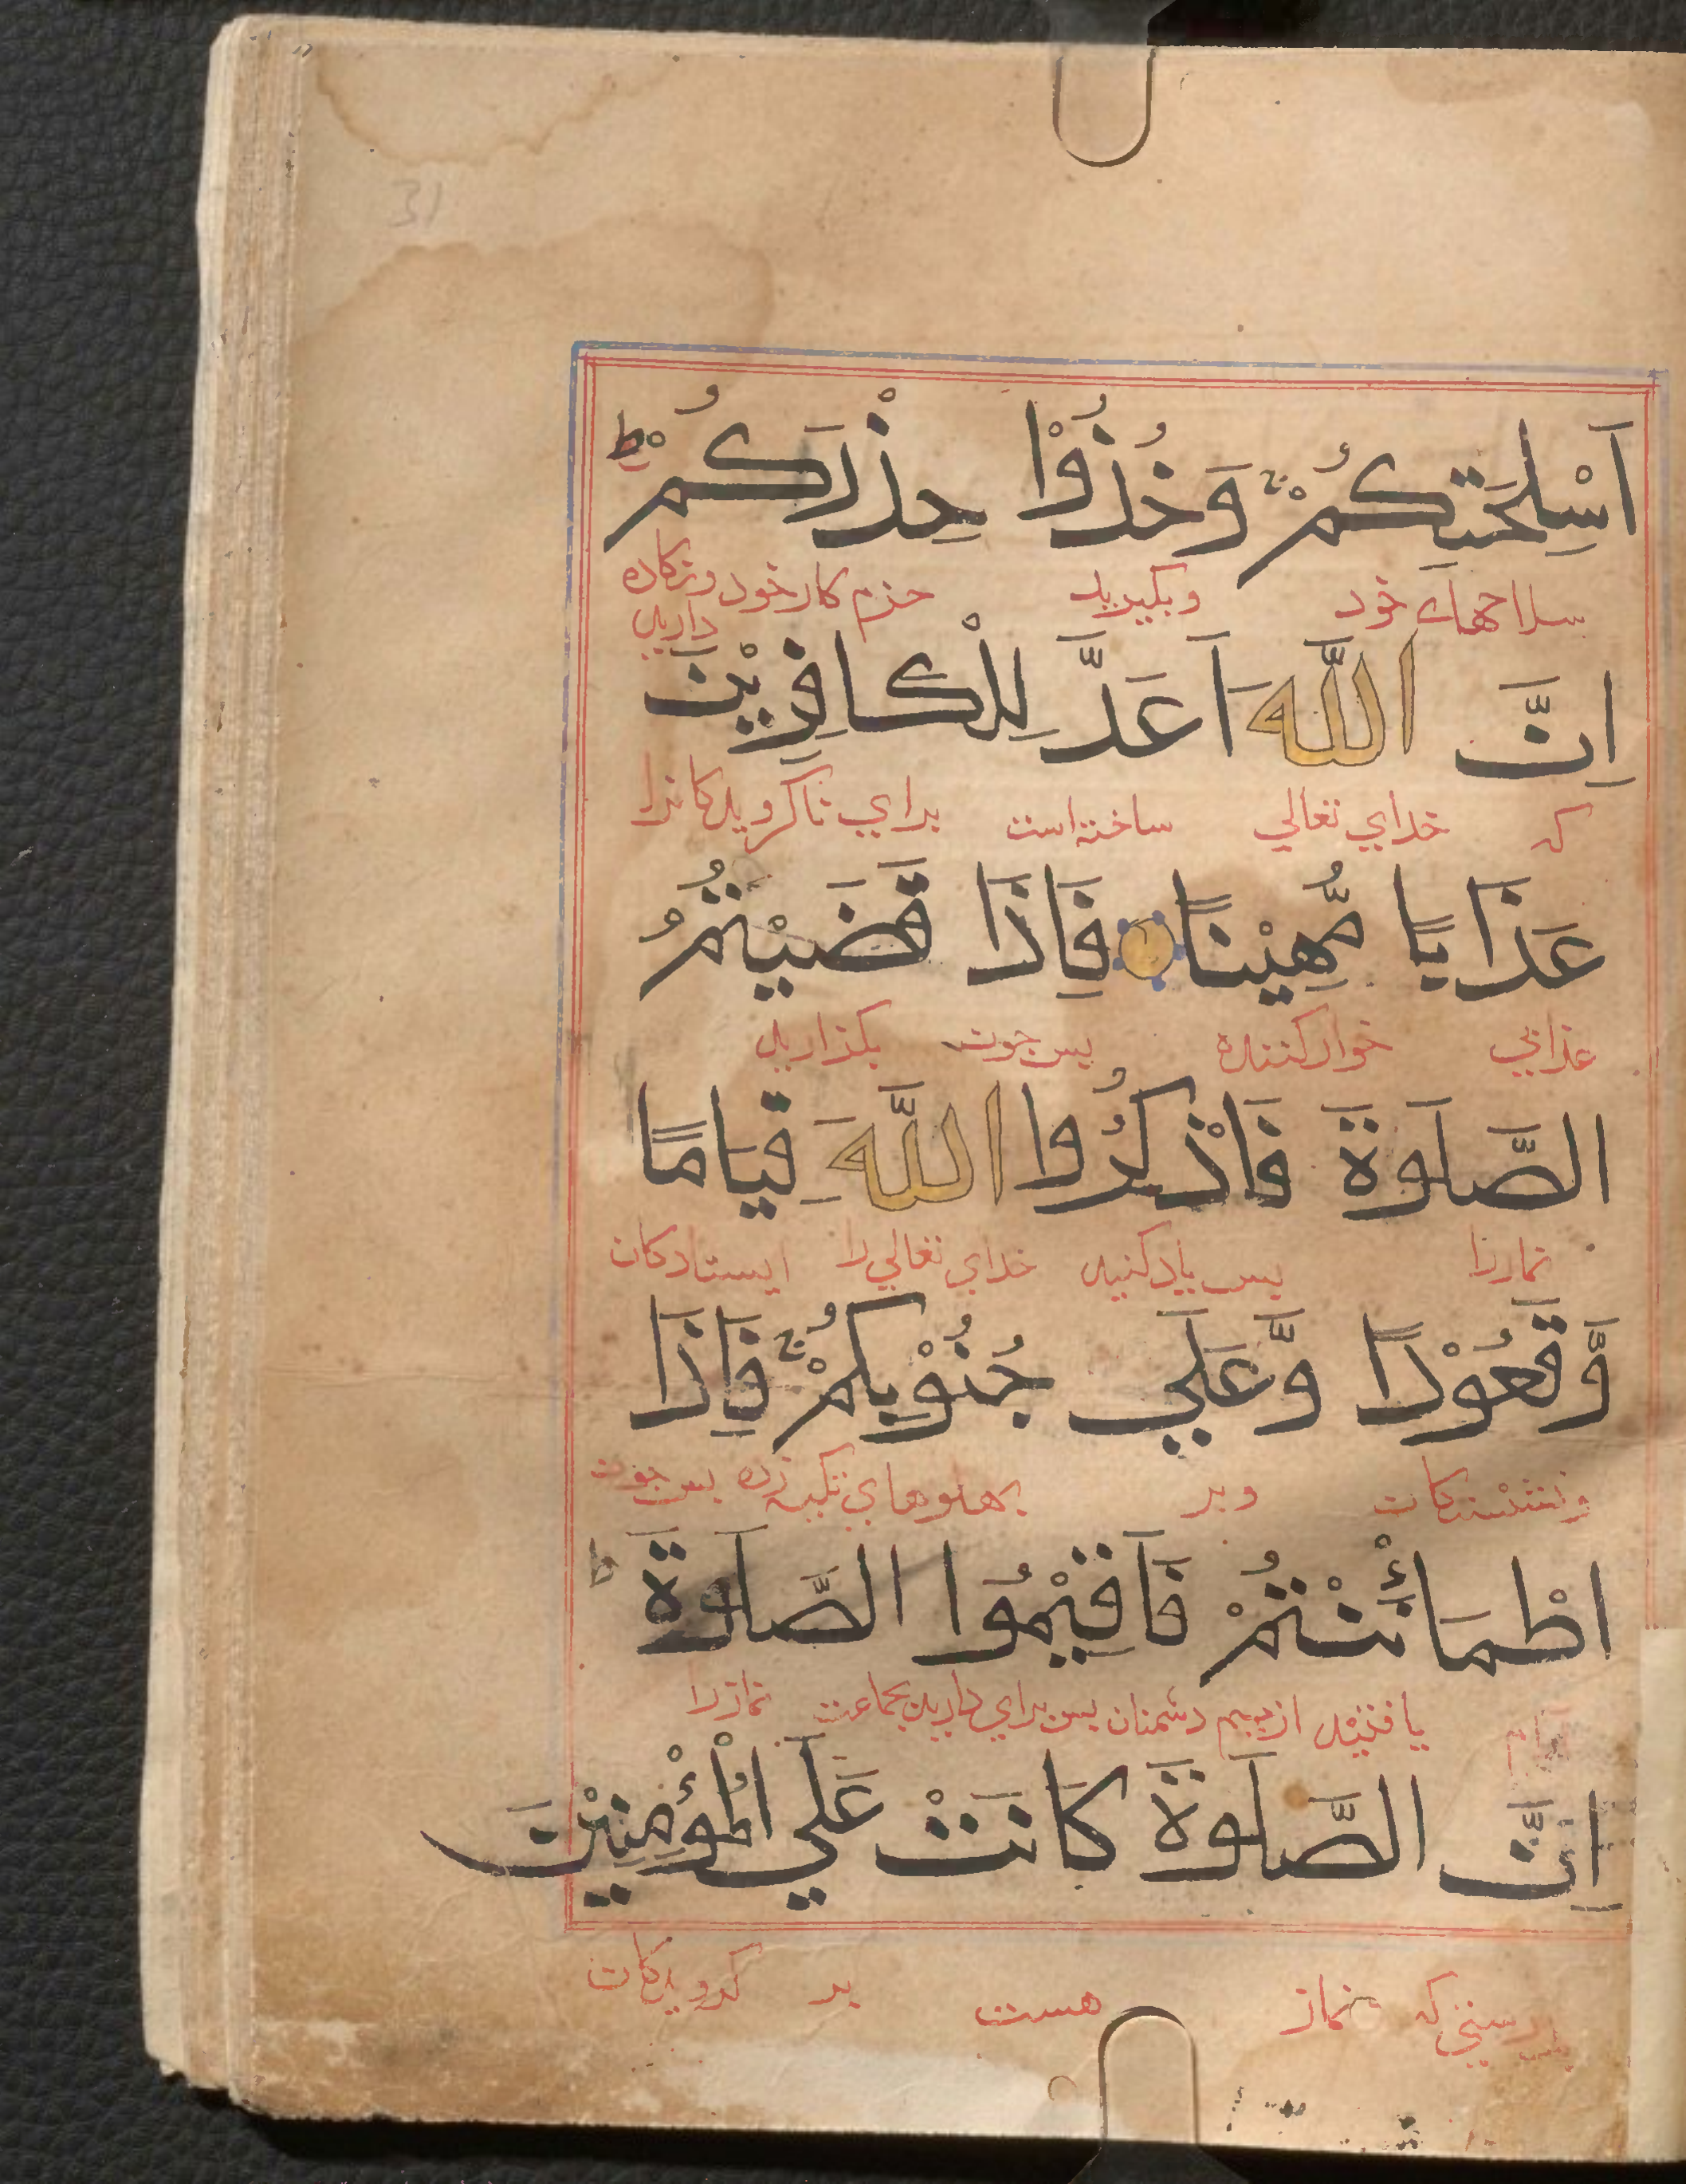 31
اَسْلِحَتِكُمْ ۚ وَخُذُوْا حِذْرَكُمْ ط
سلاحهاء خود وبكيريد حزم كار خود ونكاه
داريد
اِنَّ اللّٰهَ اَعَدَّ لِلْكَافِرِيْنَ
كه خداي تعالي ساخته است براي ناكرويدكانرا
عَذَابًا مُّهِيْنًا فَاِذَا قَضَيْتُمُ
عذابي خوار كننده پس چون بكذاريد
الصَّلَوةَ فَاذْكُرُوا اللّٰهَ قِيَامًا
نمازرا پس ياد كنيد خداي تعالي را ايستادكان
وَّقُعُوْدًا وَّعَلَي جُنُوْبِكُمْ ۚ فَاِذَا
ونشستكان وبر پهلوهاي تكيه زده پس چون
اطْمَأْنَنْتُمْ فَاَقِيْمُوا الصَّلَوةَ ط
يافتيد از بيم دشمنان پس براي داريد بجماعت نمازرا
اِنَّ الصَّلَوةَ كَانَتْ عَلَي الْمُؤْمِنِيْنَ
بدرستي كه نماز هست بر كرويدكان